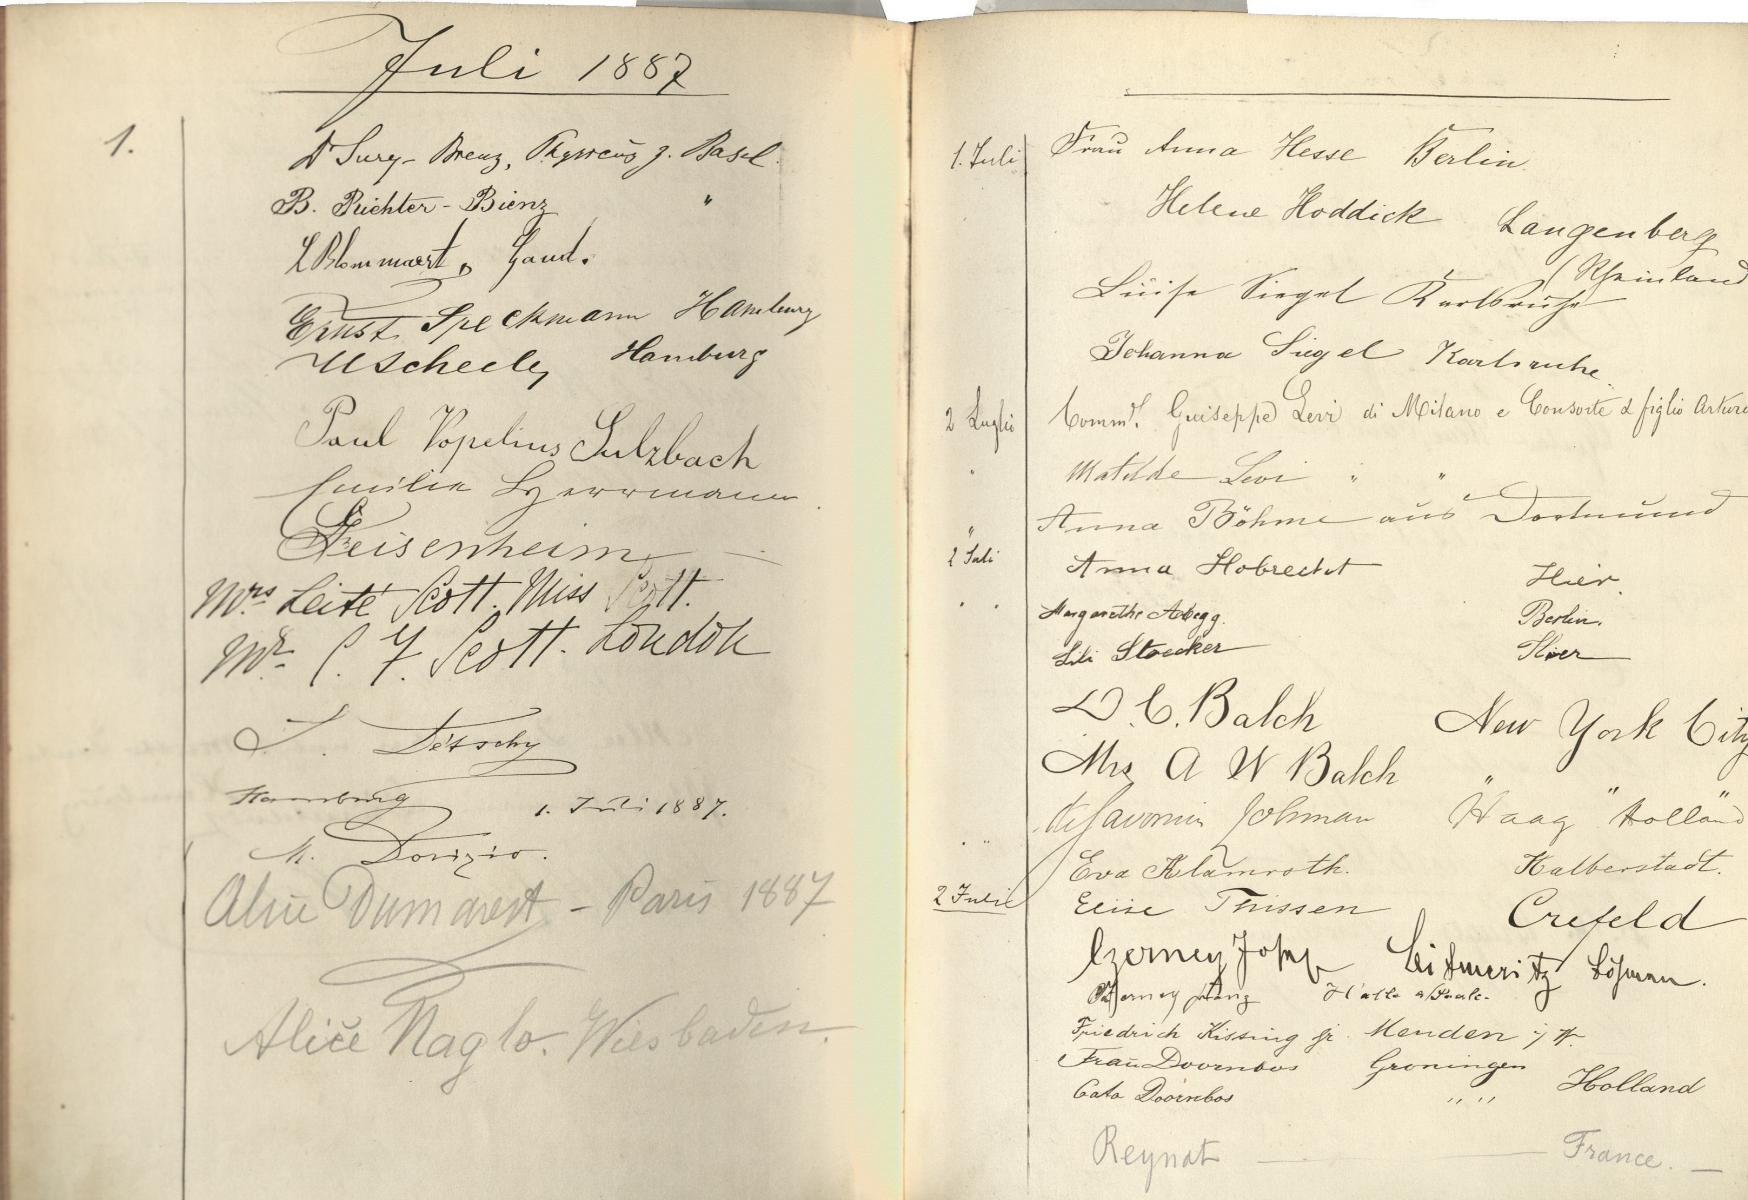 Juli 1887
1.
Dr Sury- Bienz, Physicus z. Basel.
B. Richter-Bienz "
L Blommaert, Gand.
Ernst Speckmann Hamburg
Hamburg
Paul Vopelius Sulzbach
Emilie
Meisenheim
Mrs Leité Scott. Miss Scott.
Mr C. F. Scott. London
Hamburg 1. Juli 1887.
M. Dorizio.
Alice Dumarest - Paris 1887
Alice Naglo. Wiesbaden.
1. Juli Frau Anna Hesse Berlin
Helene Hoddick Langenberg
(Rheinland
Luise Siegel Karlsruhe
Johanna Siegel Karlsruhe.
2 Luglio Comm. Guiseppe Levi di Milano e Consorte & figlio Arturo
" Matilde Levi " "
" Anna Böhme aus Dortmund
2 Juli Anna Hobrecht Hier.
" " Margarethe Abegg. Berlin.
Lili Stoecker Hier
D. C. Balch New York City
Mrs A W Balch " "
Lohman Haag Holland
" " Eva Klamroth. Halberstadt.
2 Juli Elise Thissen Crefeld
Czerney Josef Leitmeritz Böhmen.
Czerney Franz Halle a/Saale.
Friedrich Kissing jr. Menden i/W.
Frau Doornbos Groningen
Cato Doornbos " " Holland
Reynat — France. —